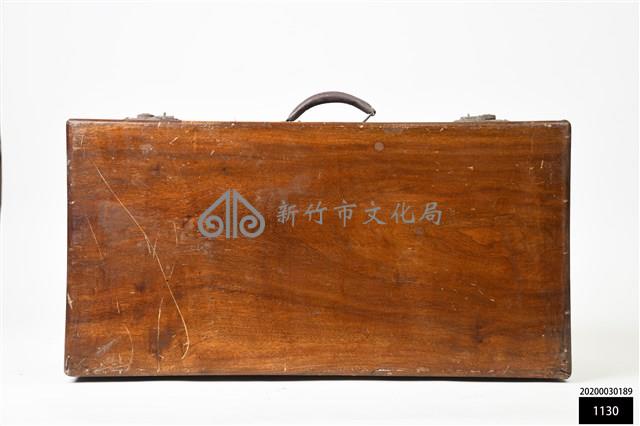 新竹市文化局
20200030189
1130